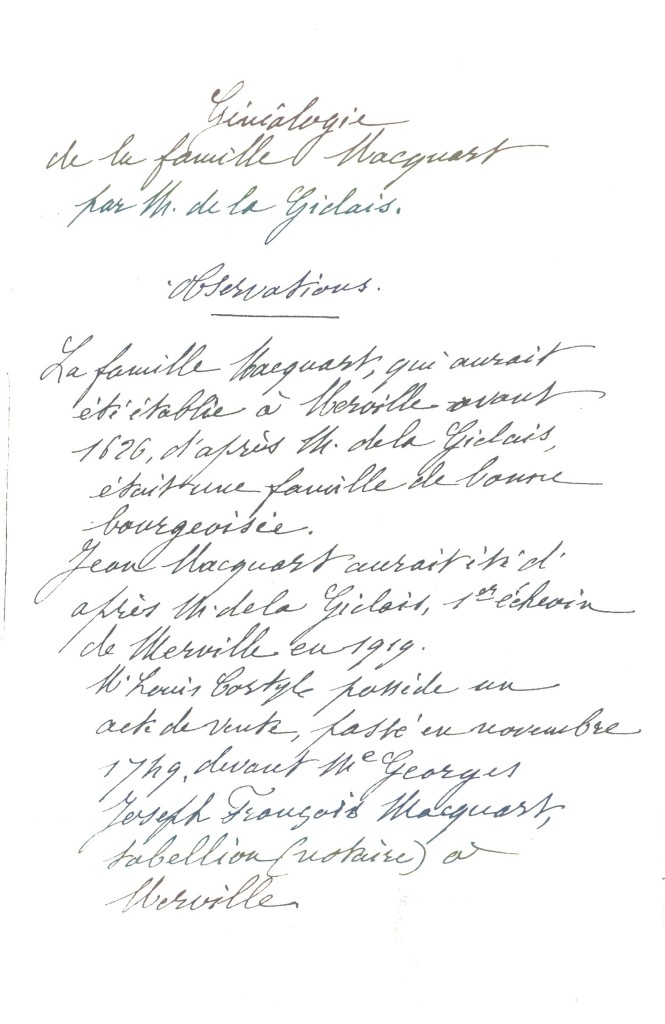 Généalogie
de la famille Macquart
par M. de la Giclais.
Observations.
La famille Macquart, qui aurait
été établie à Merville avant
1626, d'après M. de la Giclais,
était une famille de bonne
bourgeoisie.
Jean Macquart aurait été d'
après M. de la Giclais, 1er échevin
de Merville en 1919.
Mr Louis Costyle possède un
acte de vente, passé en novembre
1749, devant Me Georges
Joseph François Macquart,
tabellion (notaire) à
Merville.